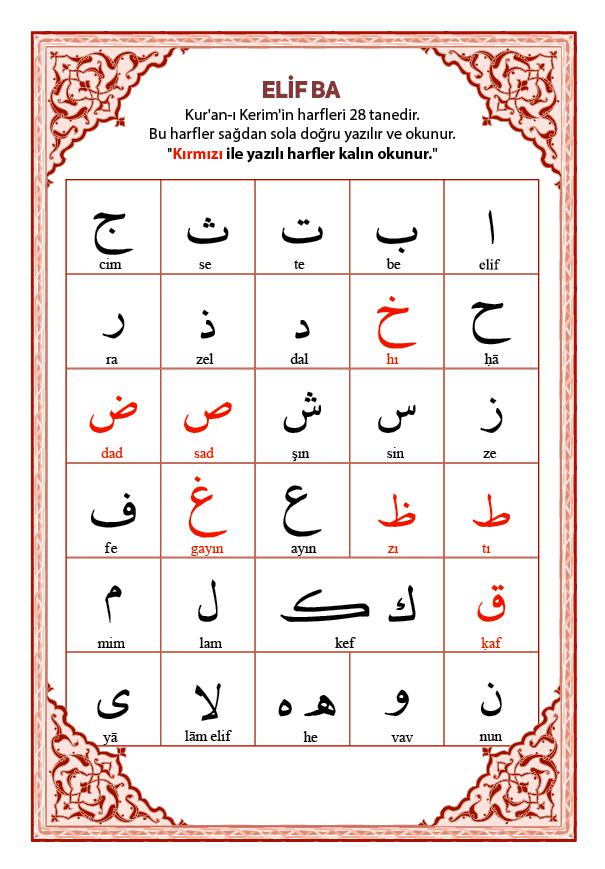 ELİF BA
Kur'an-ı Kerim'in harfleri 28 tanedir.
Bu harfler sağdan sola doğru yazılır ve okunur.
"Kırmızı ile yazılı harfler kalın okunur."
ا ب ت ث ج
elif be te se cim
ح خ د ذ ر
ḥā hı dal zel ra
ز س ش ص ض
ze sin şın sad dad
ط ظ ع غ ف
tı zı ayın gayın fe
ق ك ک ل م
ḳaf kef lam mim
ن و هـ ه لا ى
nun vav he lām elif yā